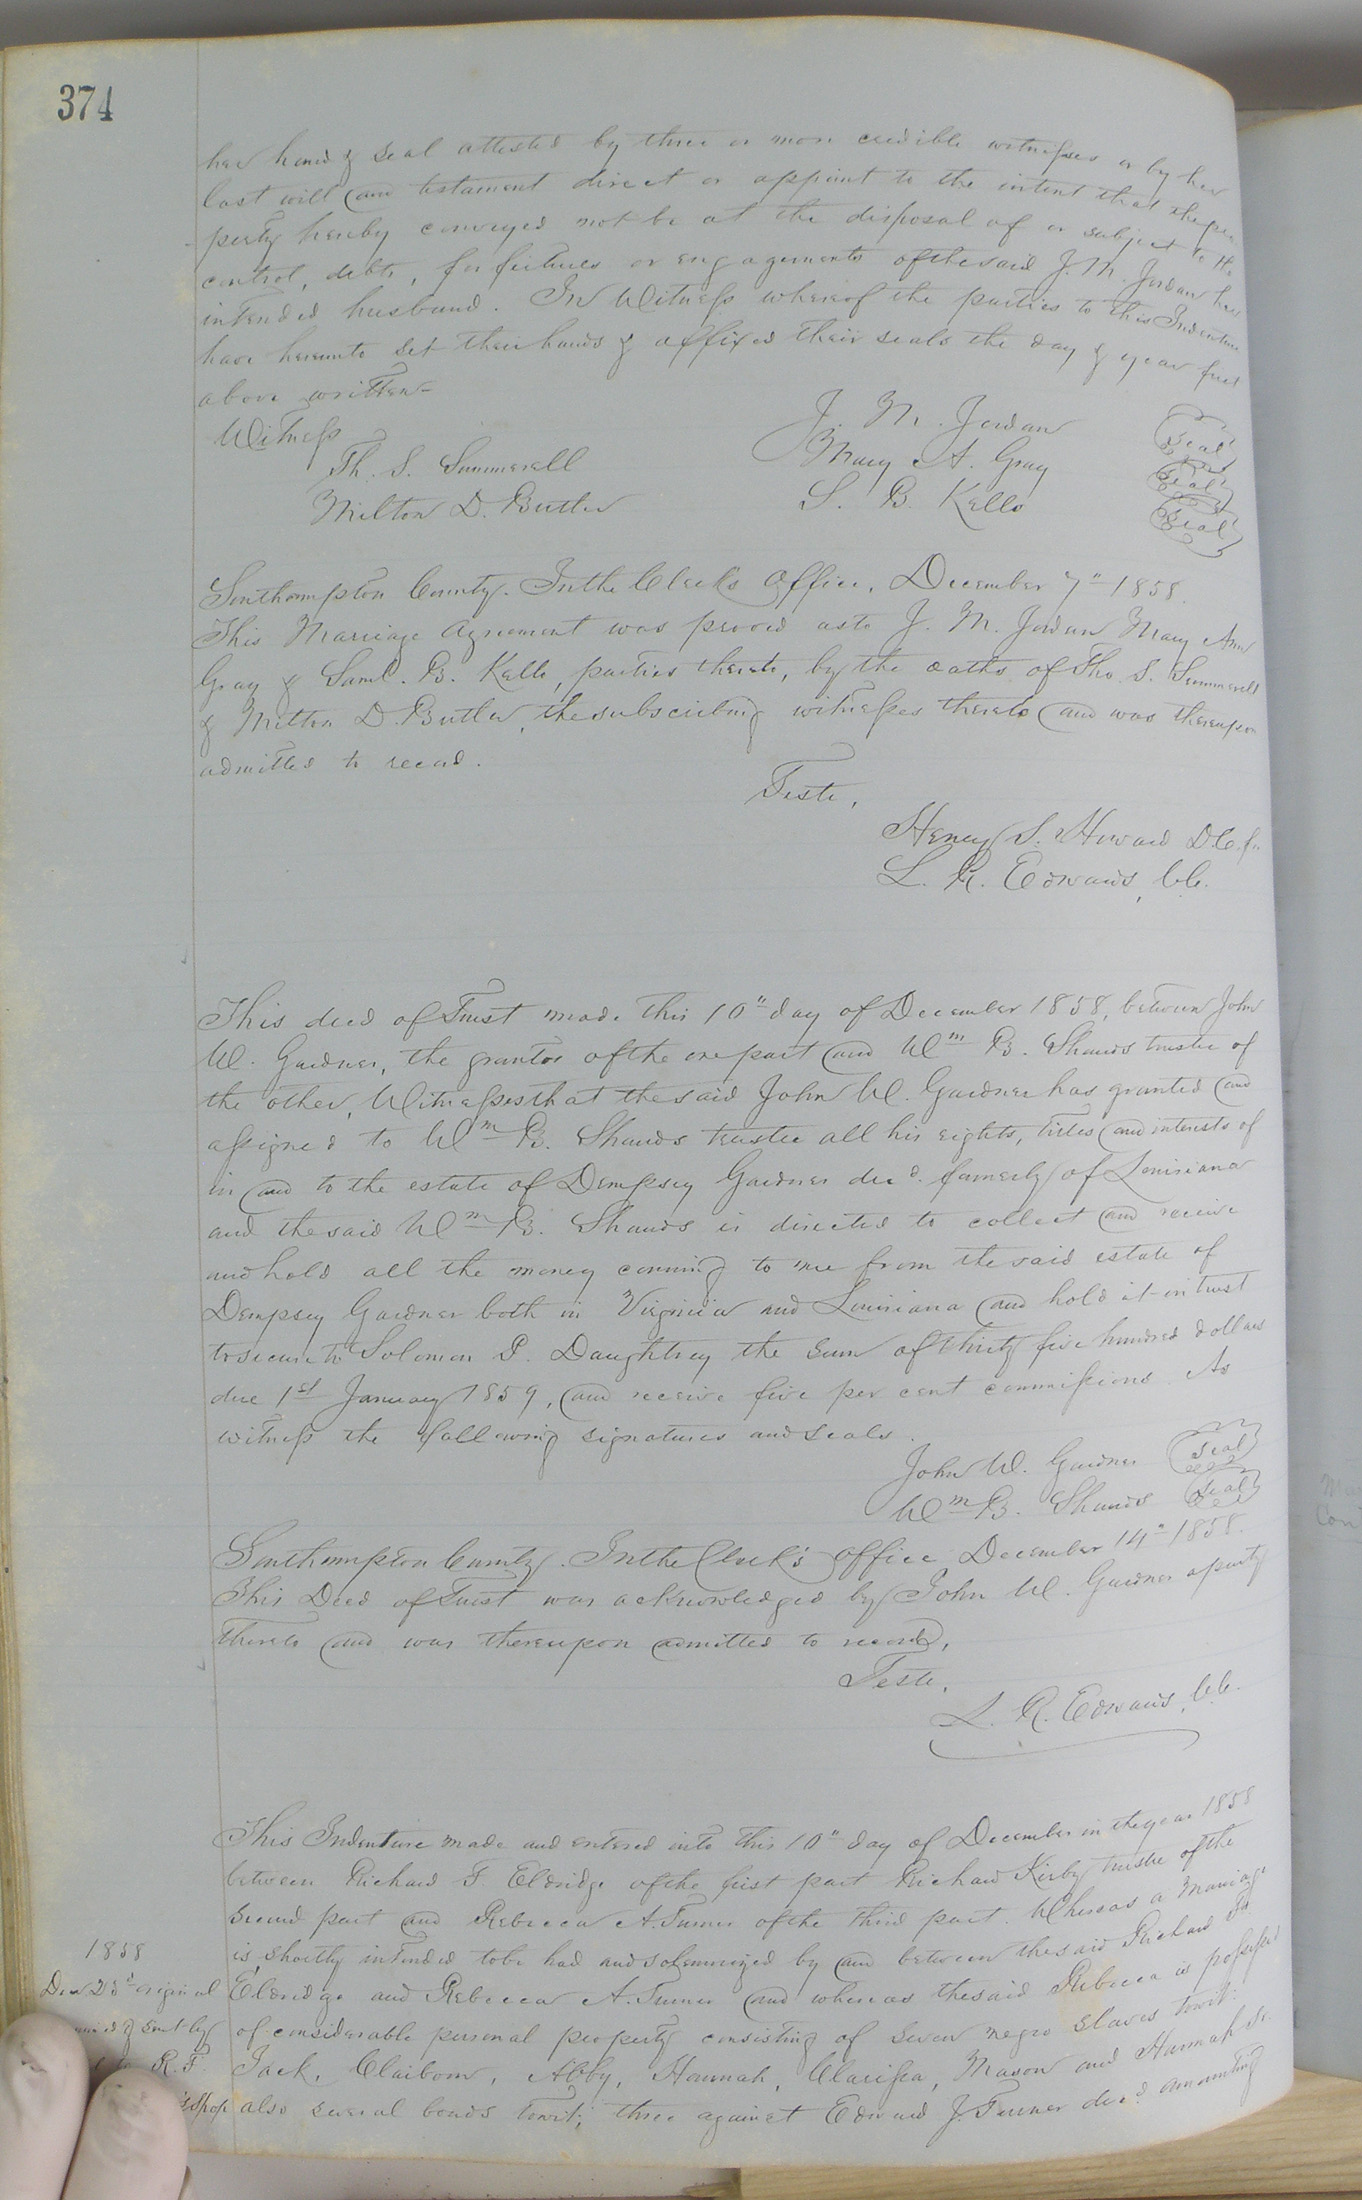 374
her hand & seal attested by three or more credible witnesses or by her
last will and testament direct or appoint to the intent that the pro
perty hereby conveyed not be at the disposal of or subject to the
control, debts, forfeitures or engagements of the said J. M. Jordan her
intended husband. In Witness whereof the parties to this Indenture
have hereunto set their hands & affixed their seals the day & year first
above written
Witness
J. M. Jordan Seal
Th. S. Summerell
Mary A. Gray Seal
Milton D. Butler
S. B. Kello Seal
Southampton County. In the Clerks Office, December 7" 1858.
This Marriage Agreement was proved as to J. M. Jordan Mary Ann
Gray & Saml. B. Kello, parties thereto, by the oaths of Tho. S. Summerell
& Milton D. Butler, the subscribing witnesses thereto and was thereupon
admitted to record.
Teste,
Henry S. Howard D.C. for
L. R. Edwards, C.C.
This deed of Trust made this 10" day of December 1858, between John
W. Gardner, the grantor of the one part and Wm B. Shands trustee of
the other, Witnesses that the said John W. Gardner has granted and
assigned to Wm B. Shands trustee all his rights, titles and interests of
in and to the estate of Dempsey Gardner decd. formerly of Louisiana
and the said Wm B. Shands is directed to collect and receive
and hold all the money coming to me from the said estate of
Dempsey Gardner both in Virginia and Louisiana and hold it in trust
to secure to Solomon P. Daughtrey the sum of thirty five hundred dollars
due 1st January 1859, and receive five per cent commissions. As
witness the following signatures and seals.
John W. Gardner Seal
Wm B. Shands Seal
Southampton County. In the Clerk's office December 14" 1858.
This Deed of Trust was acknowledged by John W. Gardner a party
thereto and was thereupon admitted to record,
Teste,
L. R. Edwards, C.C.
This Indenture made and entered into this 10" day of December in the year 1858
between Richard F. Eldridge of the first part Richard Kirby trustee of the
second part and Rebecca A. Turner of the third part. Whereas a Marriage
is shortly intended to be had and solemnized by and between the said Richard F.
Eldridge and Rebecca A. Turner and whereas the said Rebecca is possessed
of considerable personal property consisting of seven negro slaves towit:
Jack, Claiborn, Abby, Hannah, Clarissa, Mason and Hannah Sr.
also several bonds towit; three against Edward J. Turner decd. amounting
1858
Decr 23d original
& sent by
to R. F.